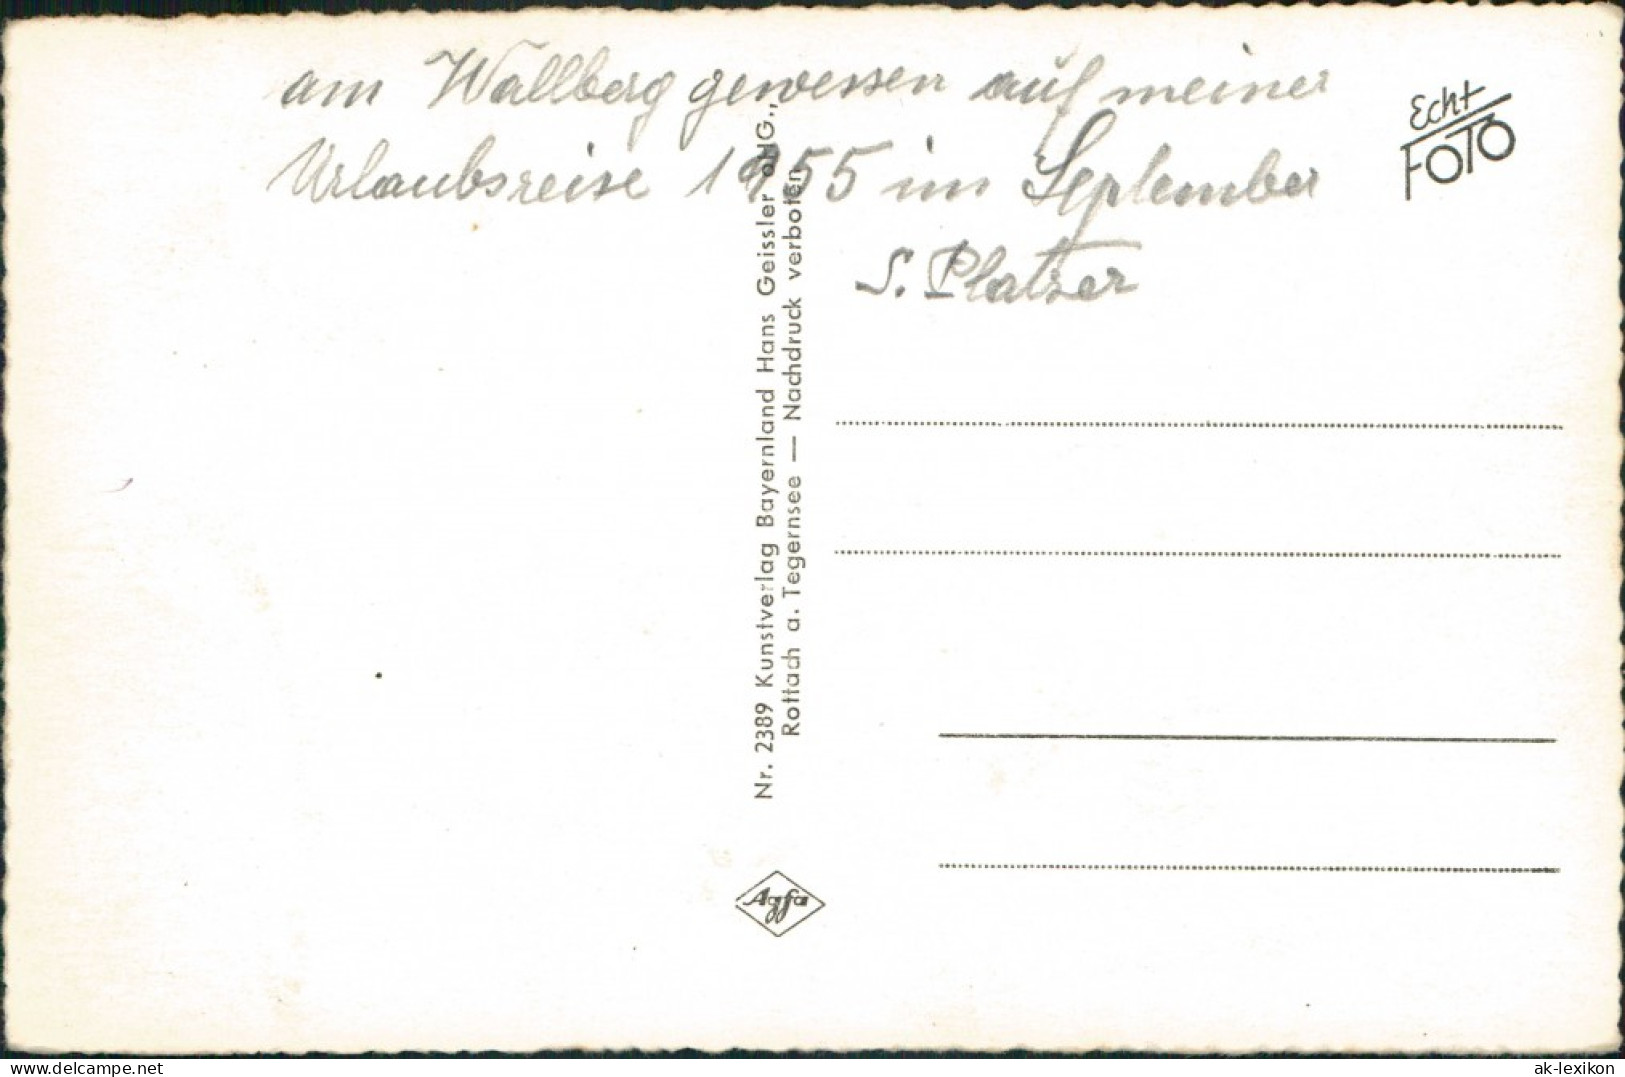 am Wallberg gewessen auf meiner
Urlaubsreise 1955 im September
S. Platzer
Echt
FOTO
Nr. 2389 Kunstverlag Bayernland Hans Geissler oHG.,
Rottach a. Tegernsee — Nachdruck verboten
Agfa
www.delcampe.net
ak-lexikon